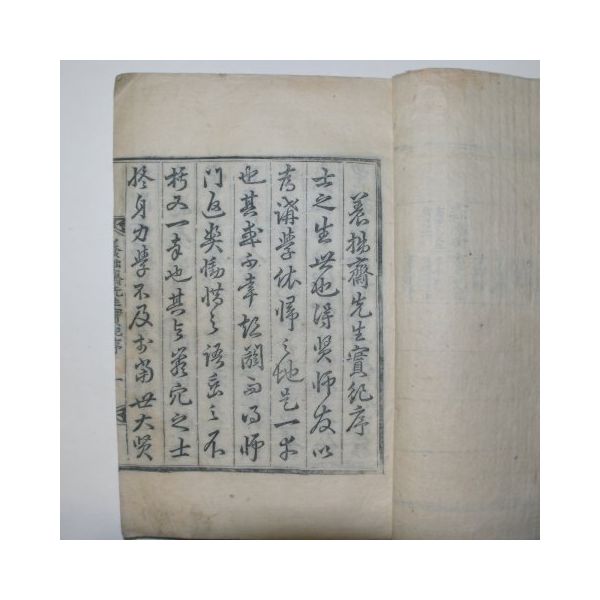 養拙齋先生實紀序
士之生世也得賢師友以
爲講學依歸之地是一幸
也其或不幸而師
門惜之語之不
朽又一幸也其與之士
終身力學不及於當世大賢
養拙齋先生實紀序 一